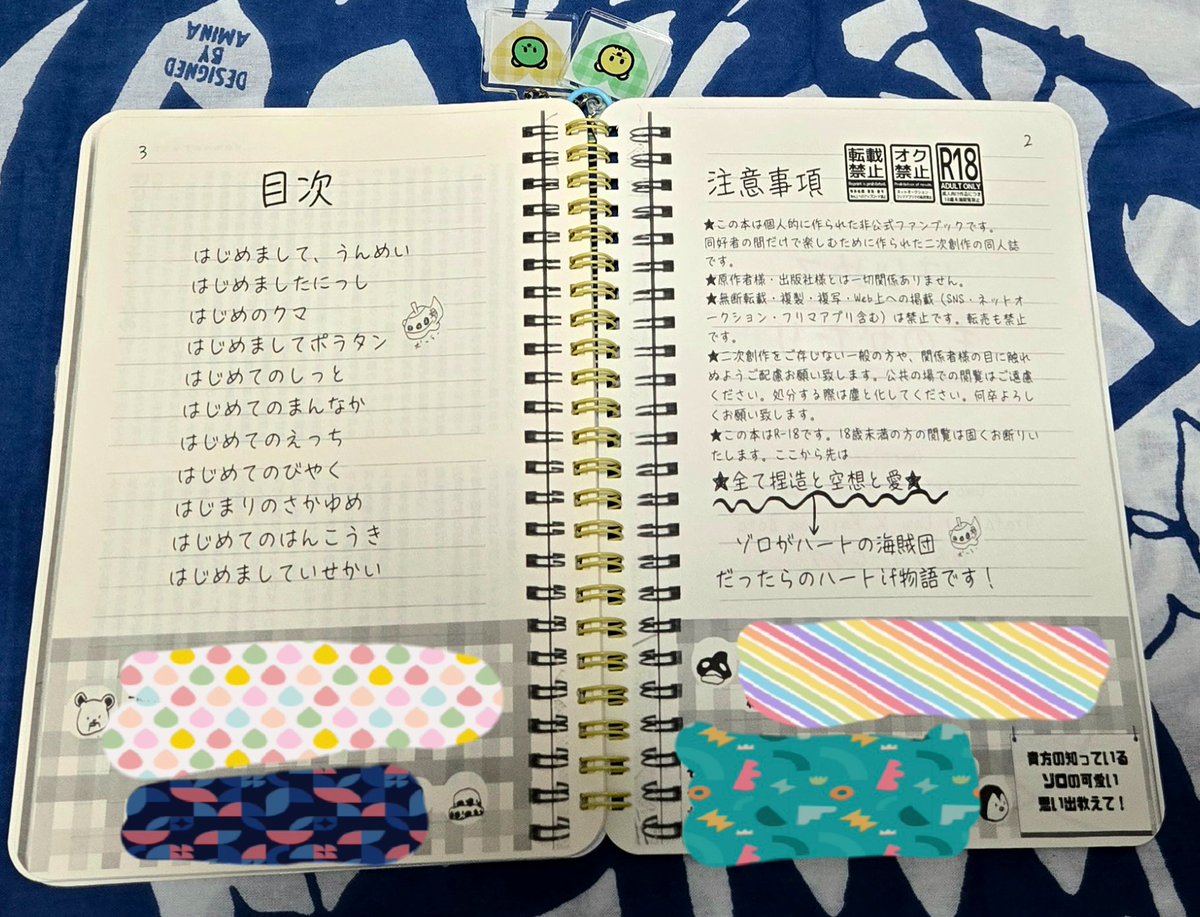 DESIGNED
BY
AMINA
3
目次
はじめまして、うんめい
はじめましたにっし
はじめのクマ
はじめましてポラタン
はじめてのしっと
はじめてのまんなか
はじめてのえっち
はじめてのびやく
はじまりのさかゆめ
はじめてのはんこうき
はじめましていせかい
2
注意事項
転載
禁止
オク
禁止
R18
ADULT ONLY
★この本は個人的に作られた非公式ファンブックです。
同好者の間だけで楽しむために作られた二次創作の同人誌
です。
★原作者様・出版社様とは一切関係ありません。
★無断転載・複製・複写・Web上への掲載（SNS・ネットオ
ークション・フリマアプリ含む）は禁止です。転売も禁止
です。
★二次創作をご存じない一般の方や、関係者様の目に触れ
ぬようご配慮お願い致します。公共の場での閲覧はご遠慮
ください。処分する際は塵と化してください。何卒よろし
くお願い致します。
★この本はR-18です。18歳未満の方の閲覧は固くお断りい
たします。ここから先は
★全て捏造と空想と愛★
ゾロがハートの海賊団
だったらのハートif物語です！
貴方の知っている
ゾロの可愛い
思い出教えて！